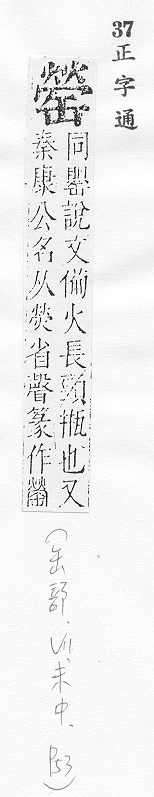 37正字通
罃
同罌說文備火長頸瓶也又
秦康公名从熒省聲篆作罃
(缶部、VII、未中、P53)